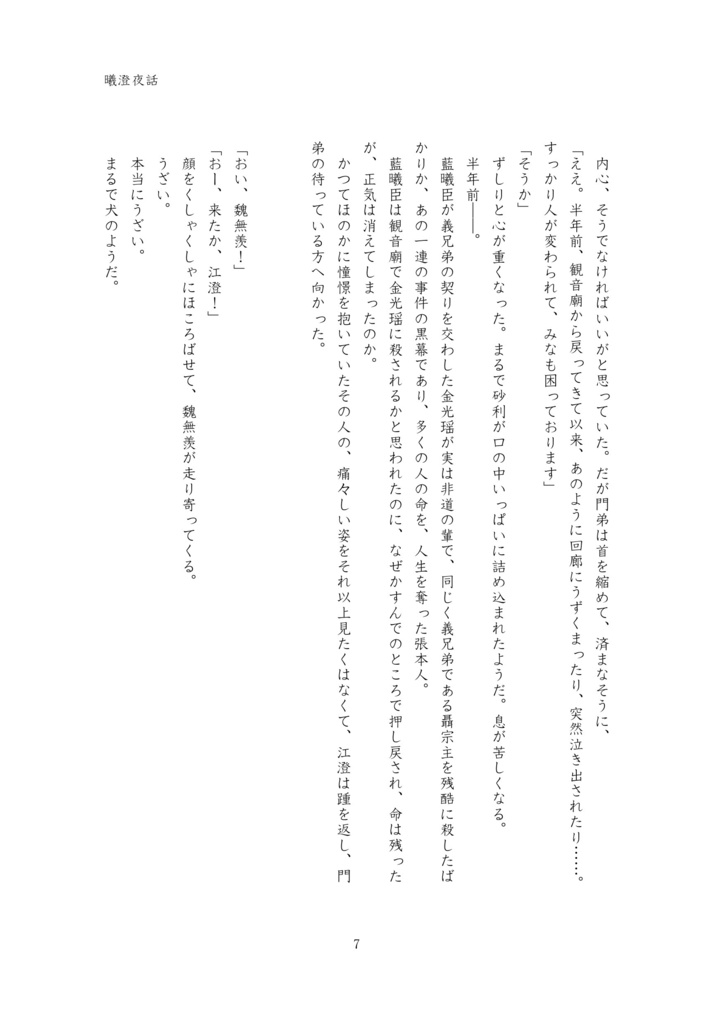 曦澄夜話
内心、そうでなければいいがと思っていた。だが門弟は首を縮めて、済まなそうに、
「ええ。半年前、観音廟から戻ってきて以来、あのように回廊にうずくまったり、突然泣き出されたり……。
すっかり人が変わられて、みなも困っております」
「そうか」
ずしりと心が重くなった。まるで砂利が口の中いっぱいに詰め込まれたようだ。息が苦しくなる。
半年前――。
藍曦臣が義兄弟の契りを交わした金光瑶が実は非道の輩で、同じく義兄弟である聶宗主を残酷に殺したば
かりか、あの一連の事件の黒幕であり、多くの人の命を、人生を奪った張本人。
藍曦臣は観音廟で金光瑶に殺されるかと思われたのに、なぜかすんでのところで押し戻され、命は残った
が、正気は消えてしまったのか。
かつてほのかに憧憬を抱いていたその人の、痛々しい姿をそれ以上見たくはなくて、江澄は踵を返し、門
弟の待っている方へ向かった。
「おい、魏無羨！」
「おー、来たか、江澄！」
顔をくしゃくしゃにほころばせて、魏無羨が走り寄ってくる。
うざい。
本当にうざい。
まるで犬のようだ。
7